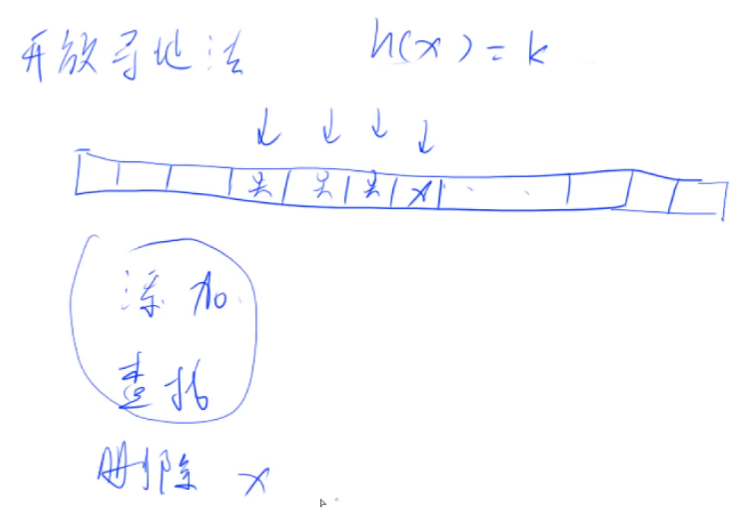 开放寻址法 h(x)=k
关 关 关 x
添加
查找
删除 x